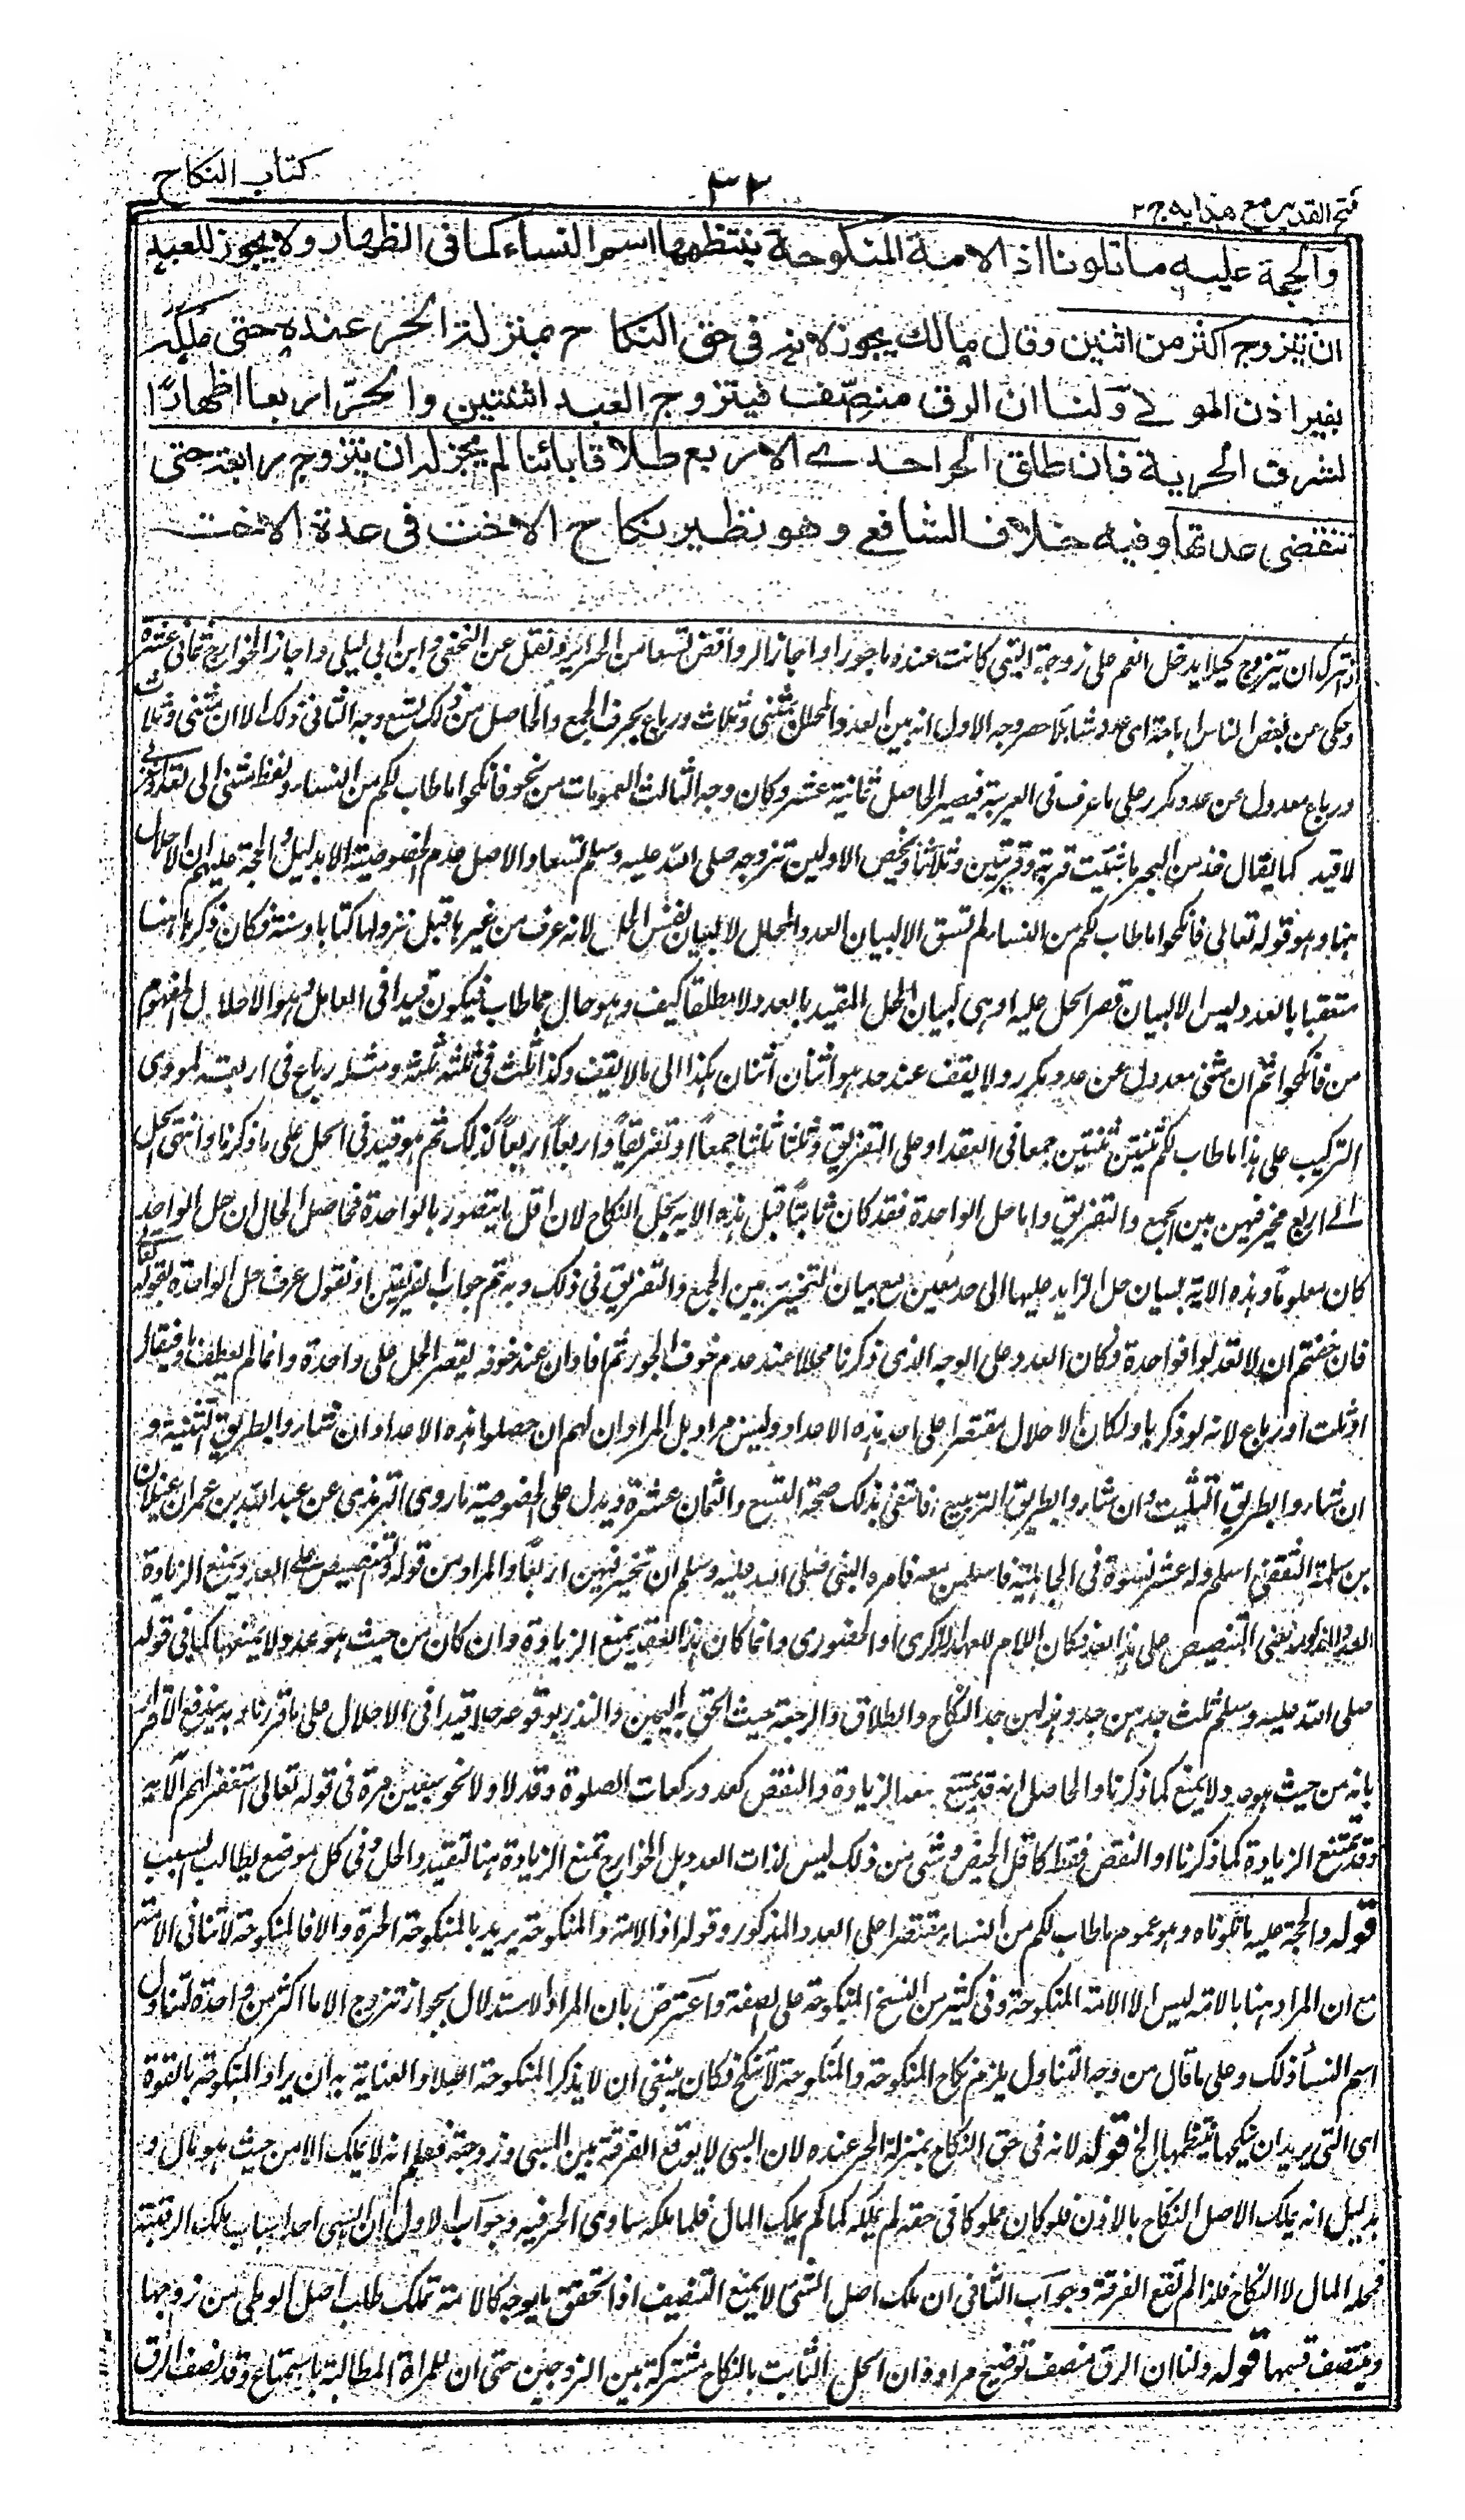 كتاب النكاح
٣٢
فتح القدير مع هدايه ج ٢
والحجة عليه ما تلونا اذ الامة المنكوحة ينتظمها اسم النساء كما فى الظهار ولا يجوز للعبد
ان يتزوج اكثر من اثنين وقال مالك يجوز لانه فى حق النكاح بمنزلة الحر عنده حتى ملكه
بغير اذن المولے ولنا ان الرق منصف فيتزوج العبد اثنتين والحر اربعا اظهارًا
لشرف الحرية فان طلق الحر احدے الاربع طلاقا بائنا لم يجز له ان يتزوج رابعة حتى
تنقضى عدتها وفيه خلاف الشافعے وهو نظير نكاح الاخت فى عدة الاخت
ان تتزوج كيلا يدخل الغم على زوجة التى كانت عنده ماجورا واجاز الروافض تسعا من الحرائر ونقل عن النخعى وابن ابى ليلى واجاز الخوارج ثمانى عشرة
وحكى عن بعض الناس اباحة اى عدد شاء بلا حصر وجه الاول انه بين العدد المحلل بمثنى وثلاث ورباع بحرف الجمع والحاصل من ذلك تسع وجه الثانى ذلك الا ان مثنى وثلاث
ورباع معدول عن عدد مكرر على ما عرف فى العربية فيصير الحاصل ثمانية عشر وكان وجه الثالث العمومات من نحو فانكحوا ما طاب لكم من النساء ولفظ مثنى الى
لا قيد كما يقال خذ من البحر ما شئت قربة وقربتين وثلاثا ويخص الاولين تزوجه صلى الله عليه وسلم تسعا والاصل عدم الخصوصية الا بدليل والحجة عليهم ان الاحلال
ههنا وهو قوله تعالى فانكحوا ما طاب لكم من النساء لم تسق الا لبيان العدد المحلل لا لبيان نفس الحل لانه عرف من غيرها قبل نزولها كتابا وسنة فكان ذكرها هنا
متعقبا بالعدد ليس الا لبيان قصر الحل عليه او هى لبيان الحل المقيد بالعدد لا مطلقا كيف وهو حال مما طاب فيكون قيدا فى العامل وهو الاحلال المفهوم
من فانكحوا ثم ان مثنى معدول عن عدد مكرر ولا يقف عند حد هو اثنان اثنان هكذا الى ما لا يقف وكذا ثلث فى ثلثة ثلثة ومثله رباع فى اربعة فمؤدى
التركيب على هذا ما طاب لكم ثنتين ثنتين جمعا فى العقد او على التفريق وثلثا ثلثا جمعاً او تفريقاً واربعاً اربعاً كذلك ثم هو قيد فى الحل على ما ذكرنا وانتهى الحل
الے اربع مخير فيهن بين الجمع والتفريق واما حل الواحدة فقد كان ثابتاً قبل هذه الاية بحل النكاح لان اقل ما يتصور بالواحدة فحاصل الحال ان حل الواحدة
كان معلوماً وهذه الاية لبيان حل الزايد عليها الى حد معين مع بيان التخيير بين الجمع والتفريق فى ذلك وبه تم جواب الفريقين او نقول عرف حل الواحدة بقوله تعالے
فان خفتم ان لا تعدلوا فواحدة فكان العدد على الوجه الذى ذكرنا محللا عند عدم خوف الجور ثم افاد ان عند خوفه يقصر الحل على واحدة وانما لم يعطف باو فيقال
او ثلث او رباع لانه لو ذكر باو لكان الاحلال مقتصرا على احد هذه الاعداد وليس مراد بل المراد ان لهم ان يحصلوا هذه الاعداد ان شاءوا بطريق التثنية و
ان شاءوا بطريق التثليث وان شاءوا بطريق التربيع فانتفى بذلك صحة التسع والثمان عشرة ويدل على الخصوصية ما روى الترمذى عن عبد الله بن عمر ان غيلان
بن سلمة الثقفى اسلم وله عشر نسوة فى الجاهلية فاسلمن معه فامره النبى صلى الله عليه وسلم ان تخير فيهن اربعاً والمراد من قوله والتنصيص على العدد يمنع الزيادة
العدد المذكور يعنى التنصيص على هذا العدد فكان اللام للعهد الذكرى او الحضورى وانما كان هذا العقد يمنع الزيادة وان كان من حيث هو عدد لا يمنعها كما فى قوله
صلى الله عليه وسلم ثلث جدهن جد وهزلهن جد النكاح والطلاق والرجعة حيث الحق به اليمين والنذر بوقوعه حلا قيدا فى الاحلال على ما قررناه به يندفع الاعتراض
بانه من حيث هو عدد لا يمنع كما ذكرنا والحاصل انه قد يمتنع بعد الزيادة والنقص كعدد ركعات الصلوة وقد لا ولا نحو سبعين مرة فى قوله تعالى استغفر لهم الاية
وقد تمتنع الزيادة كما ذكرنا او النقص فقط كاقل الحيض وشى من ذلك ليس لذات العدد بل الخوارج تمنع الزيادة هنا لتقييد الحل وفى كل موضع يطالب السبب
قوله والحجة عليه ما تلوناه وهو عموم ما طاب لكم من النساء مقتصرا على العدد المذكور وقوله اذ الامة والمنكوحة يريد بالمنكوحة الحرة والا فالمنكوحة لا تنافى الامة
مع ان المراد هنا بالامة ليس الا الامة المنكوحة وفى كثير من النسخ المنكوحة على الصفة واعترض بان المراد الاستدلال بجواز تزوج الاماء اكثر من واحدة لتناول
اسم النساء ذلك وعلى ما قال من وجه التناول يلزم نكاح المنكوحة والمنكوحة لا تنكح فكان ينبغى ان لا يذكر المنكوحة اصلا والعناية به ان يراد المنكوحة بالقوة
اى التى يريد ان ينكحها ينتظمها الخ قوله لانه فى حق النكاح بمنزلة الحر عنده لان السبى لا يوقع الفرقة بين السبى وزوجته فعلم انه لا يملك الا من حيث هو مال و
بدليل انه يملك الاصل النكاح بالاذن فلو كان مملوكا فى حقه لم يملكه كما لم يملك المال فلما ملكه ساوى الحر فيه وجواب الاول ان السبى احد اسباب ملك الرقبة
فمحله المال لا النكاح فلذا لم تقع الفرقة وجواب الثانى ان ملك اصل الشئ لا يمنع التنصيف اذا تحقق ما يوجبه كالامة تملك طلب اصل الوطى من زوجها
ويتنصف قسمها قوله ولنا ان الرق منصف توضيح مراده ان الحل الثابت بالنكاح مشتركة بين الزوجين حتى ان للمراة المطالبة باستمتاع وقد نصف الرق